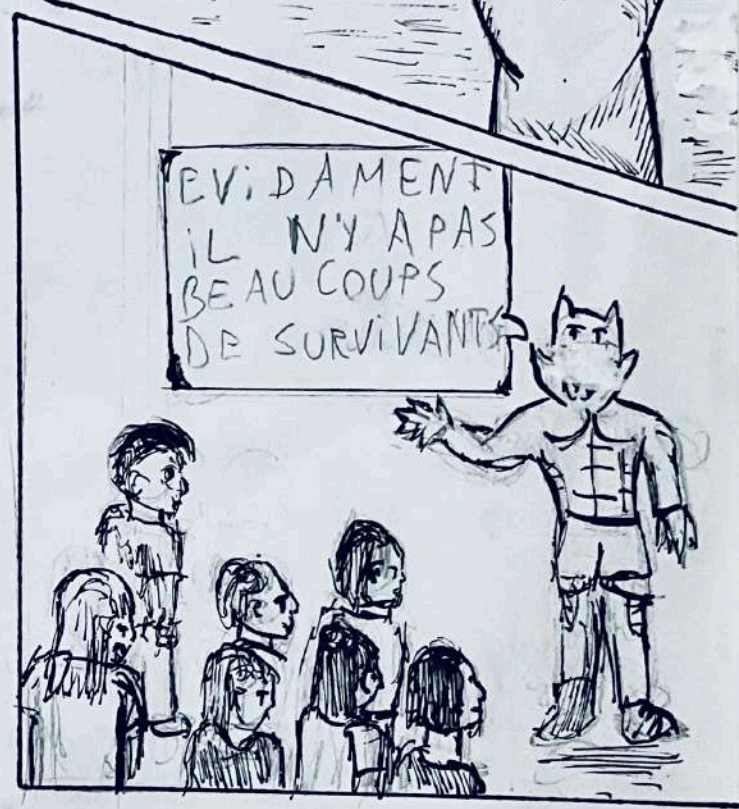 EViDAMENT
iL N'Y A PAS
BEAUCOUPS
DE SURViVANTS